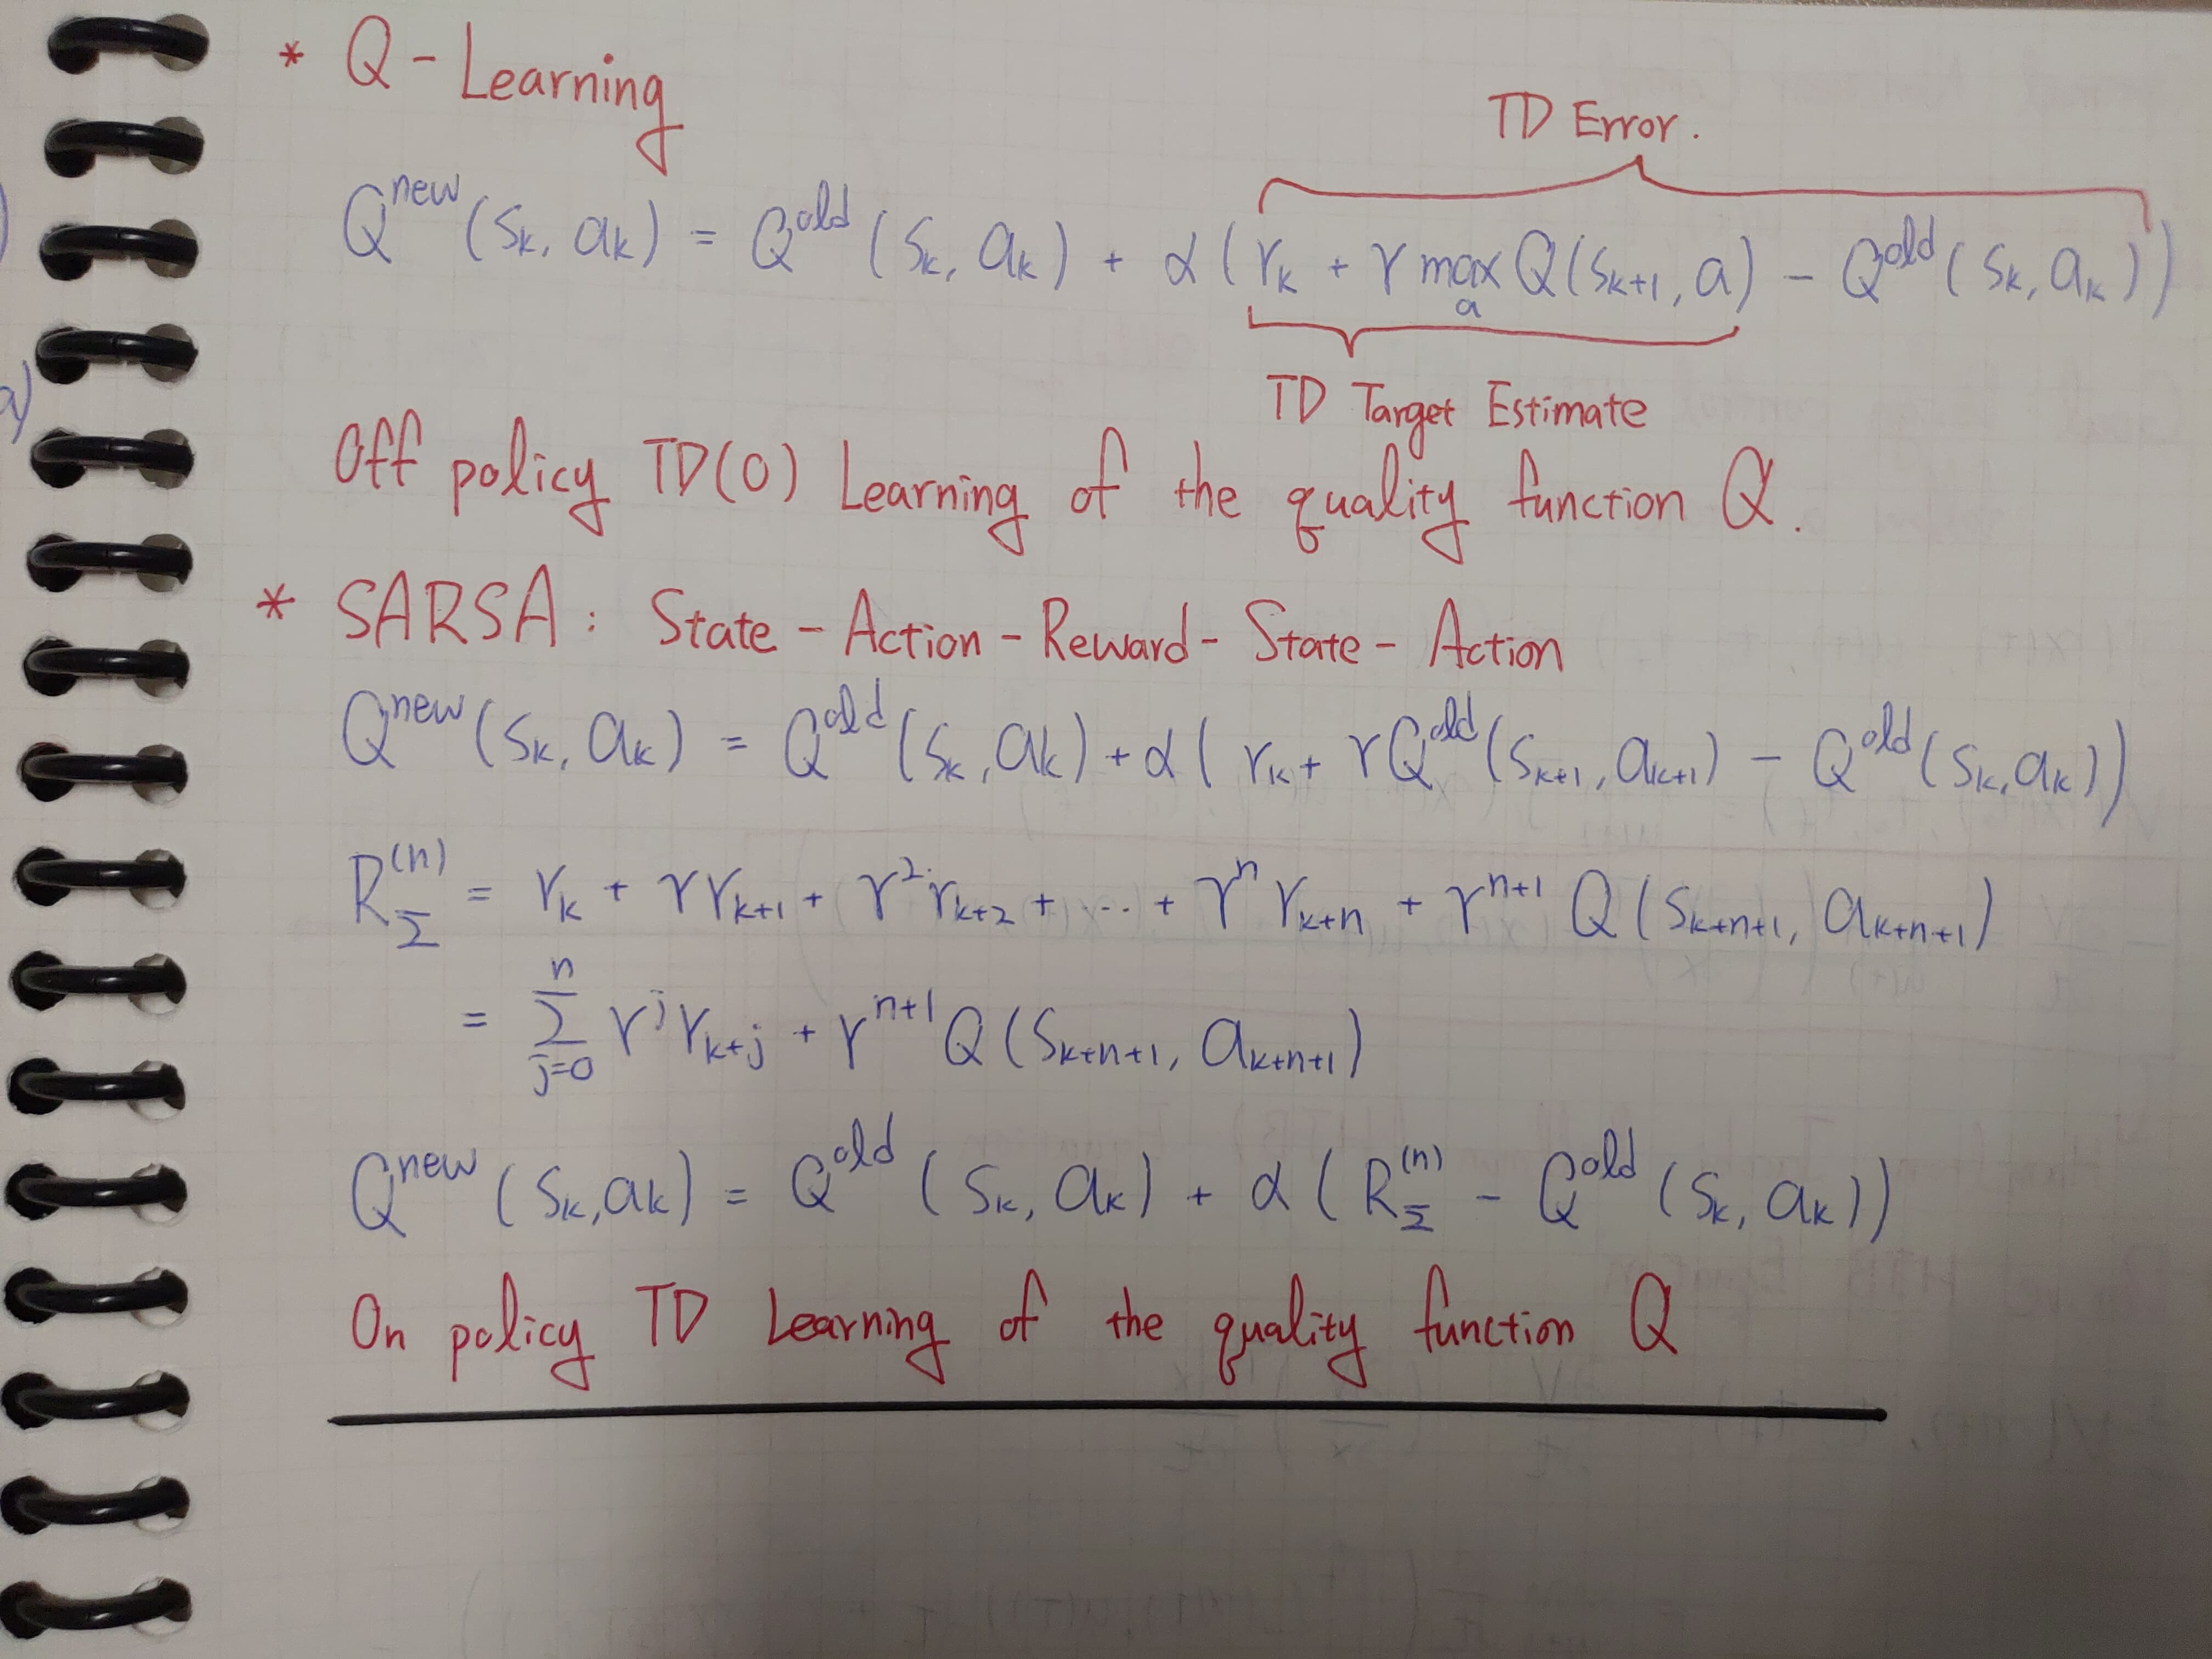 * Q - Learning
TD Error.
Q^new (s_k, a_k) = Q^old (s_k, a_k) + α (r_k + γ max_a Q(s_{k+1}, a) - Q^old (s_k, a_k))
TD Target Estimate
Off policy TD(0) Learning of the quality function Q.
* SARSA: State - Action - Reward - State - Action
Q^new (s_k, a_k) = Q^old (s_k, a_k) + α ( r_k + γQ^old (s_{k+1}, a_{k+1}) - Q^old (s_k, a_k))
R_Σ^(n) = r_k + γr_{k+1} + γ^2 r_{k+2} + ... + γ^n r_{k+n} + γ^{n+1} Q (s_{k+n+1}, a_{k+n+1})
= Σ_{j=0}^n γ^j r_{k+j} + γ^{n+1} Q (s_{k+n+1}, a_{k+n+1})
Q^new (s_k, a_k) = Q^old (s_k, a_k) + α ( R_Σ^(n) - Q^old (s_k, a_k))
On policy TD Learning of the quality function Q